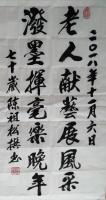 二〇一八年十二月六日
老人献藝展風采
潑墨揮毫樂晚年
七十歲陈祖松撰書